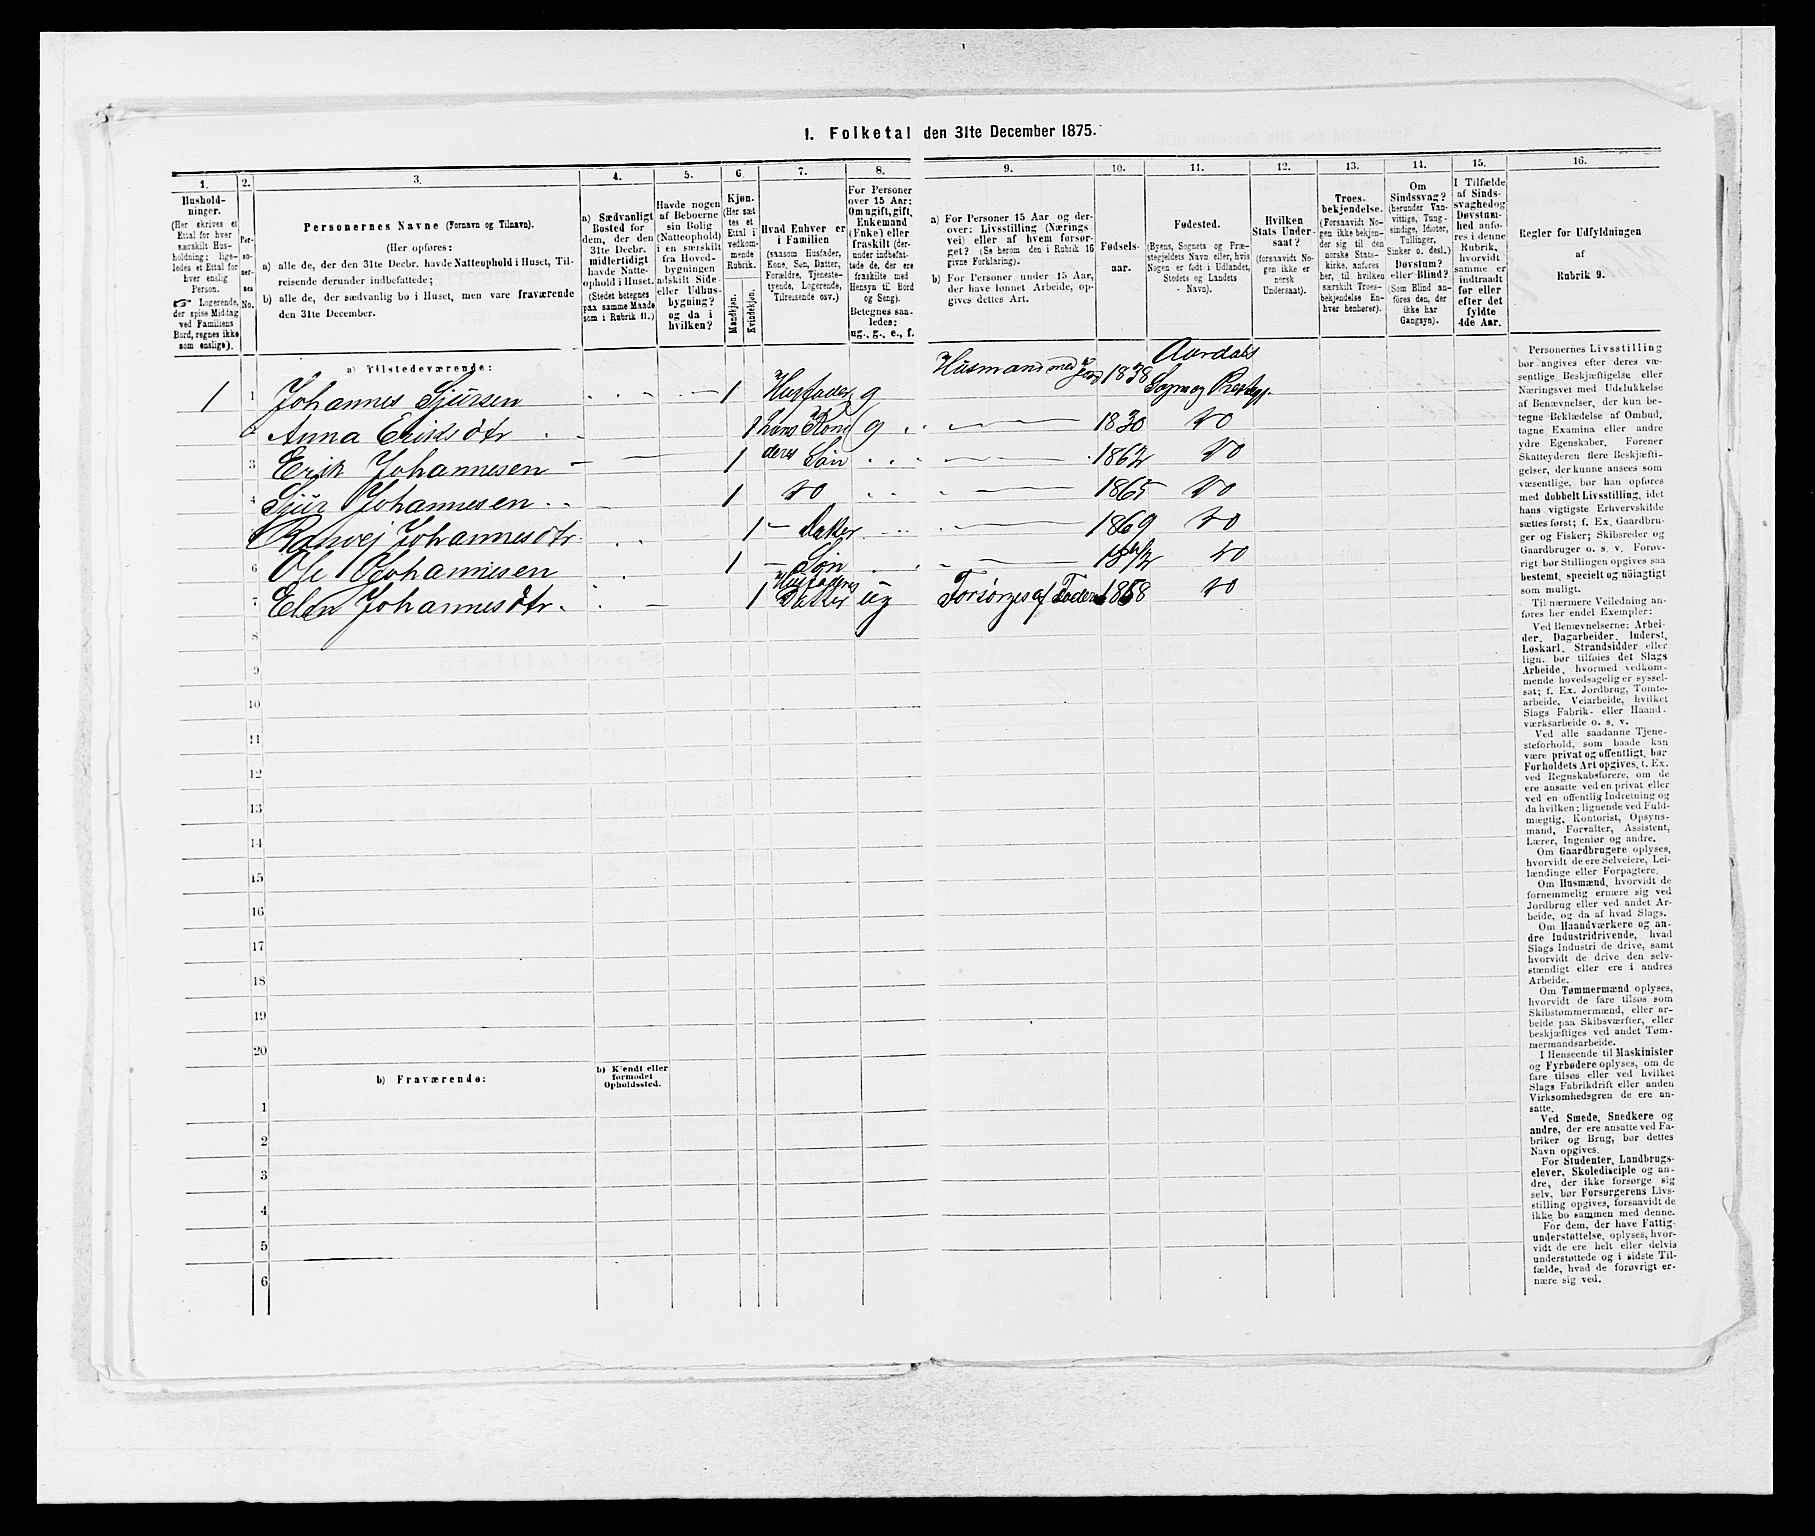 1. Folketal den 31te December 1875.
1.
Hushold-
ninger.
(Her skrives et
Ettal for hver
særskilt Hus-
holdning; lige-
ledes et Ettal for
hver enslig
Person.
Logerende,
der spise Middag
ved Familiens
Bord, regnes ikke
som enslige).
2.
Per-
so-
ner-
nes
No.
3.
Personernes Navne (Fornavn og Tilnavn).
(Her opføres:
a) alle de, der den 31te Decbr. havde Natteophold i Huset, Til-
reisende derunder indbefattede;
b) alle de, der sædvanlig bo i Huset, men vare fraværende
den 31te December.
4.
a) Sædvanligt
Bosted for
dem, der den
31te Decbr.
midlertidigt
havde Natte-
ophold i Huset.
(Stedet betegnes
paa samme Maade
som i Rubrik 11.)
5.
Havde nogen
af Beboerne
sin Bolig
(Natteophold)
i en særskilt
fra Hoved-
bygningen
adskilt Side-
eller Udhus-
bygning?
og da i
hvilken?
6.
Kjøn.
(Her sæt
tes et
Ettal i
vedkom-
mende
Rubrik.
Mandkjøn.
Kvindekjøn.
7.
Hvad Enhver er
i Familien
(saasom Husfader,
Kone, Søn, Datter,
Forældre, Tjeneste-
tyende, Logerende,
Tilreisende osv.)
8.
For Personer
over 15 Aar:
Om ugift, gift,
Enkemand
(Enke) eller
fraskilt (der-
under indbefat-
tede de, der ere
fraskilte med
Hensyn til Bord
og Seng).
Betegnes saa-
ledes:
ug., g., e., f.
9.
a) For Personer 15 Aar og der-
over: Livsstilling (Nærings
vei) eller af hvem forsør-
get? (Se herom den i Rubrik 16
givne Forklaring).
b) For Personer under 15 Aar,
der have lønnet Arbeide, op-
gives dettes Art.
10.
Fødsels-
aar.
11.
Fødested.
(Byens, Sognets og Præ-
stegjeldets Navn eller, hvis
Nogen er født i Udlandet,
Stedets og Landets
Navn).
12.
Hvilken
Stats Under-
saat?
(forsaavidt No-
gen ikke er
norsk
Undersaat).
13.
Troes-
bekjendelse.
(Forsaavidt No-
gen ikke bekjen-
der sig til den
norske Stats-
kirke, anføres
her, til hvilken
særskilt Troes-
bekjendelse En-
hver henhører).
14.
Om
Sindssvag?
(herunder Van-
vittige, Tung-
sindige, Idioter,
Tullinger,
Sinker o. desl.)
Døvstum?
eller Blind?
(Som Blind an-
føres den, der
ikke har
Gangsyn).
15.
I Tilfælde
af Sinds-
svaghed og
Døvstum-
hed anfø-
res i denne
Rubrik,
hvorvidt
samme er
indtraadt
før eller
efter det
fyldte
4de Aar.
16.
Regler for Udfyldningen
af
Rubrik 9.
a) Tilstedeværende:
1 1 Johannes Sjursen 1 Husfader g Husmand med Jord 1838 Aardals Sogn og Præstegj.
2 Anna Eriksdtr 1 hans Kone g 1830 do
3 Erik Johannesen 1 deres Søn 1862 do
4 Sjur Johannesen 1 do 1865 do
5 Ranvej Johannesdtr 1 Datter 1869 do
6 Ole Johannesen 1 Søn 1872 do
7 Elen Johannesdtr. 1 Husfaders Datter ug Forsørges af Faderen 1858 do
8
9
10
11
12
13
14
15
16
17
18
19
20
b) Fraværende:
b) Kjendt eller
formodet
Opholdssted.
1
2
3
4
5
6
Personernes Livsstilling
bør angives efter deres væ-
sentlige Beskjæftigelse eller
Næringsvei med Udelukkelse
af Benævnelser, der kun be-
tegne Beklædelse af Ombud,
tagne Examina eller andre
ydre Egenskaber. Forener
Skatteyderen flere Beskjæfti-
gelser, der kunne ansees som
væsentlige, bør han opføres
med dobbelt Livsstilling, idet
hans vigtigste Erhvervskilde
sættes først; f. Ex. Gaardbru-
ger og Fisker; Skibsreder og
Gaardbruger o. s. v. Forøv-
rigt bør Stillingen opgives saa
bestemt, specielt og nøiagtigt
som muligt.
Til nærmere Veiledning an-
føres her endel Exempler:
Ved Benævnelserne: Arbei-
der, Dagarbeider, Inderst,
Løskarl, Strandsidder eller
lign. bør tilføies det Slags
Arbeide, hvormed vedkom-
mende hovedsagelig er syssel-
sat; f. Ex. Jordbrug, Tomte-
arbeide, Veiarbeide, hvilket
Slags Fabrik- eller Haand-
værksarbeide o. s. v.
Ved alle saadanne Tjene-
steforhold, som baade kan
være privat og offentligt, bør
Forholdets Art opgives, t. Ex.
ved Regnskabsførere, om de
ere ansatte ved en privat eller
ved en offentlig Indretning og
da hvilken; lignende ved Fuld-
mægtig, Kontorist, Opsyns-
mand, Forvalter, Assistent,
Lærer, Ingeniør og andre.
Om Gaardbrugere oplyses,
hvorvidt de ere Selveiere, Lei-
lændinge eller Forpagtere.
Om Husmænd, hvorvidt de
fornemmelig ernære sig ved
Jordbrug eller ved andet Ar-
beide, og da af hvad Slags.
Om Haandværkere og an-
dre Industridrivende, hvad
Slags Industri de drive, samt
hvorvidt de drive den selv-
stændigt eller ere i andres
Arbeide.
Om Tømmermænd oplyses,
hvorvidt de fare tilsøs som
Skibstømmermænd, eller ar-
beide paa Skibsværfter, eller
beskjæftiges ved andet Tøm-
mermandsarbeide.
I Henseende til Maskinister
og Fyrbødere oplyses, om de
fare tilsøs eller ved hvilket
Slags Fabrikdrift eller anden
Virksomhedsgren de ere an-
satte.
Ved Smede, Snedkere og
andre, der ere ansatte ved Fa-
briker og Brug, bør dettes
Navn opgives.
For Studenter, Landbrugs-
elever, Skoledisciple og an-
dre, der ikke forsørge sig
selv, bør Forsørgerens Livs-
stilling opgives, forsaavidt de
ikke bo sammen med denne.
For dem, der have Fattig-
understøttelse, oplyses, hvor-
vidt de ere helt eller delvis
understøttede og i sidste Til-
fælde, hvad de forøvrigt er-
nære sig ved.